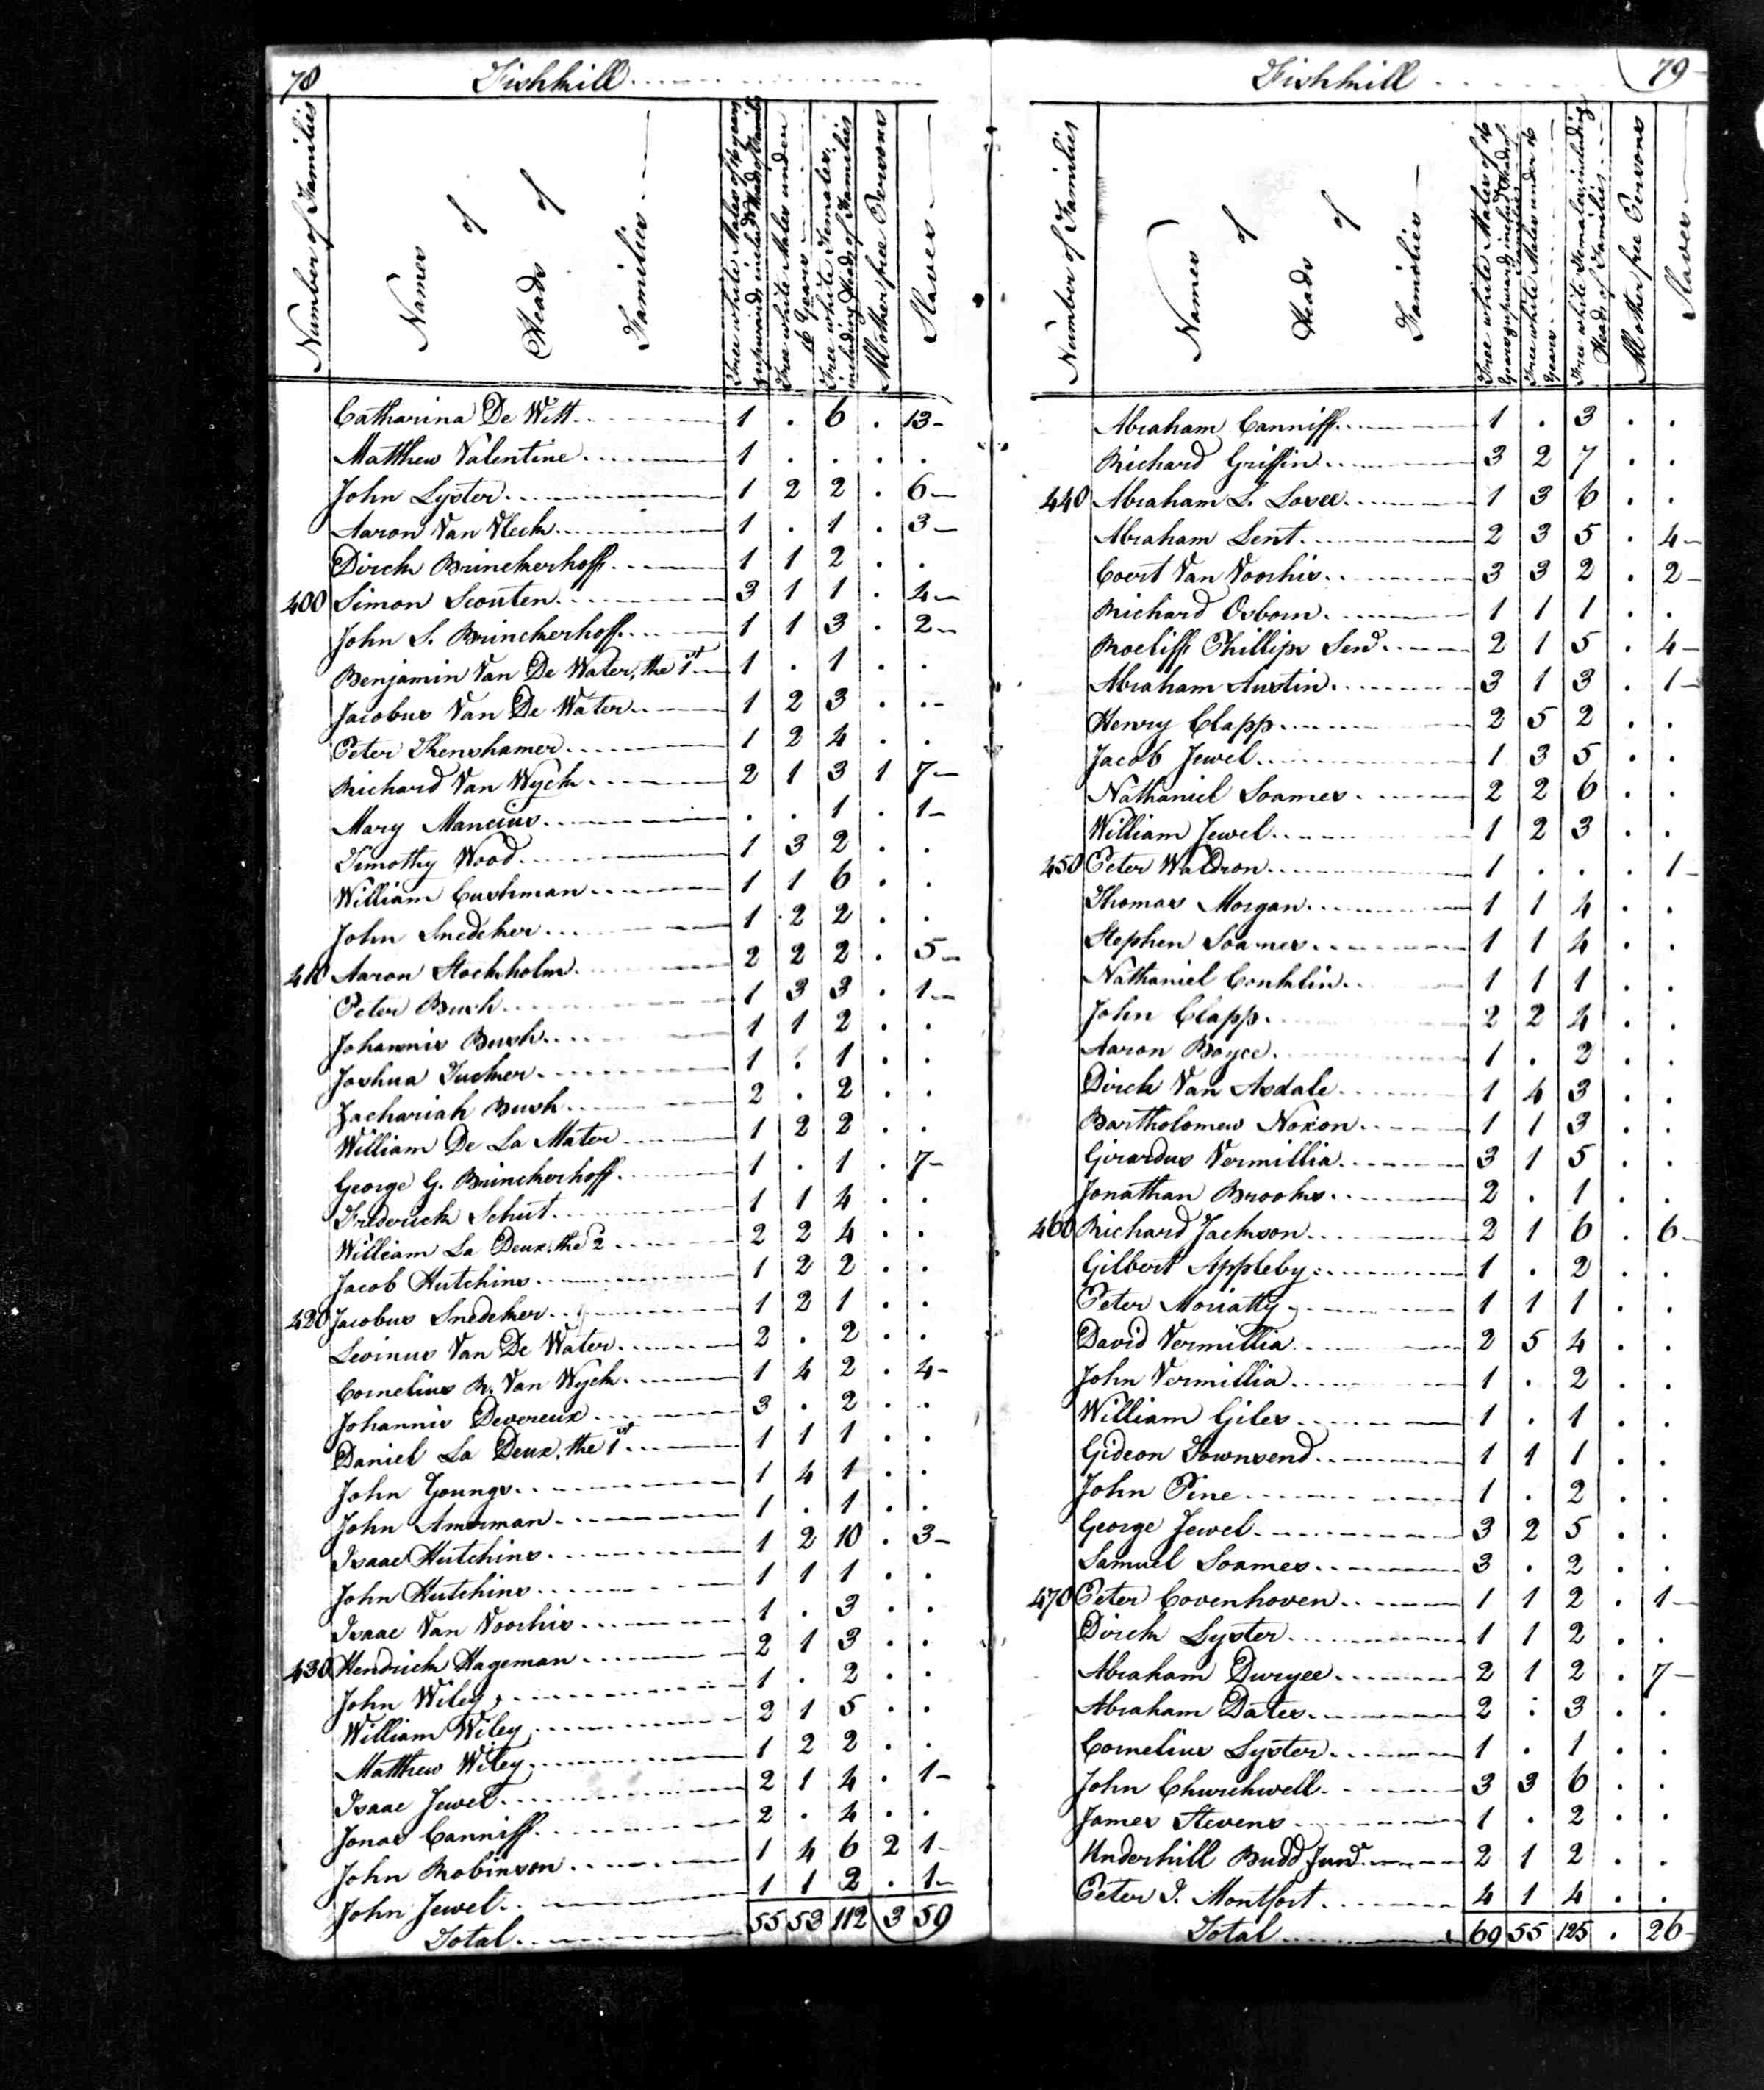 78 Fishkill
Number of Families
Names of Heads of Families
Free white Males of 16 years & upwards includg Heads of Families
Free white Males under 16 years
Free white Females, including Heads of Families
All other free Persons
Slaves
Catharina De Witt 1 . 6 . 13
Matthew Valentine 1 . . . .
John Lyster 1 2 2 . 6
Aaron Van Vleck 1 . 1 . 3
Dirck Brinckerhoff 1 1 2 . .
400 Simon Scouten 3 1 1 . 4
John S. Brinckerhoff 1 1 3 . 2
Benjamin Van De Water, the 1st 1 . 1 . .
Jacobus Van De Water 1 2 3 . .
Peter 1 2 4 . .
Richard Van Wyck 2 1 3 1 7
Mary Mancius . . 1 . 1
Timothy Wood 1 3 2 . .
William Cushman 1 1 6 . .
John Snedeker 1 2 2 . .
410 Aaron Stockholm 2 2 2 . 5
Peter Bush 1 3 3 . 1
Johannis Bush 1 1 2 . .
Joshua Tucker 1 . 1 . .
Zachariah Bush 2 . 2 . .
William De La Mater 1 2 2 . .
George G. Brinckerhoff 1 . 1 . 7
Frederick Schut 1 1 4 . .
William La Deux, the 2 2 2 4 . .
Jacob Hutchins 1 2 2 . .
420 Jacobus Snedeker 1 2 1 . .
Levinus Van De Water 2 . 2 . .
Cornelius R. Van Wyck 1 4 2 . 4
Johannis Devereux 3 . 2 . .
Daniel La Deux, the 1st 1 1 1 . .
John Youngs 1 4 1 . .
John Amerman 1 . 1 . .
Isaac Hutchins 1 2 10 . 3
John Hutchins 1 1 1 . .
Isaac Van Voorhis 1 . 3 . .
430 Hendrick Hageman 2 1 3 . .
John Wiley 1 . 2 . .
William Wiley 2 1 5 . .
Matthew Wiley 1 2 2 . .
Isaac Jewel 2 1 4 . 1
Jonas Canniff 2 . 4 . .
John Robinson 1 4 6 2 1
John Jewel 1 1 2 . 1
Total 55 53 112 3 59
Fishkill 79
Number of Families
Names of Heads of Families
Free white Males of 16 years & upwards, includg Heads of Families
Free white Males under 16 years
Free white Females, including Heads of Families
All other free Persons
Slaves
Abraham Canniff 1 . 3 . .
Richard Griffin 3 2 7 . .
440 Abraham L. Losee 1 3 6 . .
Abraham Lent 2 3 5 . 4
Coert Van Voorhis 3 3 2 . 2
Richard Osborn 1 1 1 . .
Roeliff Phillips Send 2 1 5 . 4
Abraham Austin 3 1 3 . 1
Henry Clapp 2 5 2 . .
Jacob Jewel 1 3 5 . .
Nathaniel Soames 2 2 6 . .
William Jewel 1 2 3 . .
450 Peter Waldron 1 . . . 1
Thomas Morgan 1 1 4 . .
Stephen Soames 1 1 4 . .
Nathaniel Conklin 1 1 1 . .
John Clapp 2 2 4 . .
Aaron Boyce 1 . 2 . .
Dirck Van Asdale 1 4 3 . .
Bartholomew Noxon 1 1 3 . .
Girardus Vermillia 3 1 5 . .
Jonathan Brooks 2 . 1 . .
460 Richard Jackson 2 1 6 . 6
Gilbert Appleby 1 . 2 . .
Peter Moriatty 1 1 1 . .
David Vermillia 2 5 4 . .
John Vermillia 1 . 2 . .
William Giles 1 . 1 . .
Gideon Townsend 1 1 1 . .
John Pine 1 . 2 . .
George Jewel 3 2 5 . .
Samuel Soames 3 . 2 . .
470 Peter Covenhoven 1 1 2 . 1
Dirck Lyster 1 1 2 . .
Abraham Duryee 2 1 2 . 7
Abraham Dates 2 . 3 . .
Cornelius Lyster 1 . 1 . .
John Churchwell 3 3 6 . .
James Stevens 1 . 2 . .
Underhill Budd Jund 2 1 2 . .
Peter I. Montfort 4 1 4 . .
Total 69 55 125 . 26